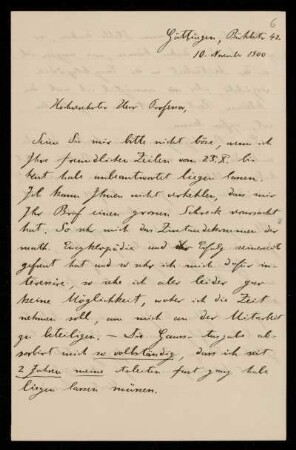 6
Göttingen,
10. November 1900
Hochverehrter Herr Professor,
Seien Sie mir bitte nicht böse, wenn ich
Ihre freundlichen Zeilen vom 23. X. bis
heut habe unbeantwortet liegen lassen.
Ich kann Ihnen nicht verhehlen, dass mir
Ihr Brief einen grossen Schreck verursacht
hat. So sehr mich das Zustandekommen der
math. Encyklopädie und Erfolg seinerzeit
gefreut hat und so sehr ich mich dafür in-
teressire, so sehe ich aber leider gar
keine Möglichkeit, woher ich die Zeit
nehmen soll, um mich an der Mitarbeit
zu beteiligen. — Die Gauss-Ausgabe ab-
sorbirt mich so vollständig, dass ich seit
2 Jahren meine Arbeiten fast ganz habe
liegen lassen müssen.